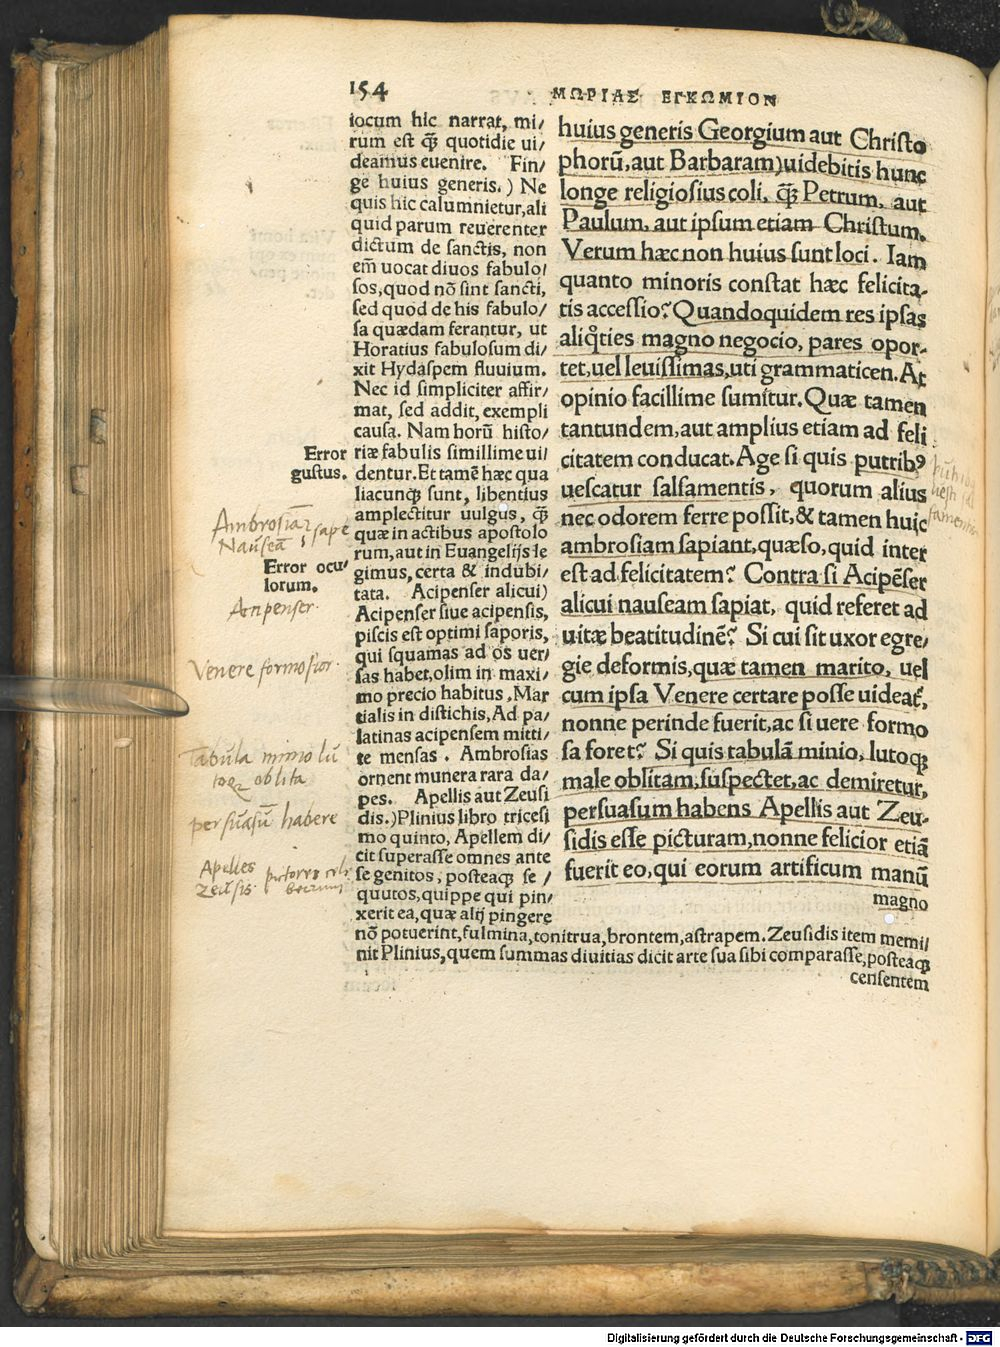 154
ΜΩΡΙΑΣ ΕΓΚΩΜΙΟΝ
iocum hic narrat, mi/
rum est q̃ȝ quotidie ui/
deamus euenire. Fin/
ge huius generis.) Ne
quis hic calumnietur, ali
quid parum reuerenter
dictum de sanctis, non
em̃ uocat diuos fabulo/
sos, quod nõ sint sancti,
sed quod de his fabulo/
sa quædam ferantur, ut
Horatius fabulosum di/
xit Hydaspem fluuium.
Nec id simpliciter affir/
mat, sed addit, exempli
causa. Nam horũ histo/
riæ fabulis simillime ui/
dentur. Et tamẽ hæc qua
liacunqȝ sunt, libentius
amplectitur uulgus, q̃ȝ
quæ in actibus apostolo
rum, aut in Euangelijs le
gimus, certa & indubi/
tata. Acipenser alicui)
Acipenser siue acipensis,
piscis est optimi saporis,
qui squamas ad os uer/
sas habet, olim in maxi/
mo precio habitus. Mar
tialis in distichis, Ad pa/
latinas acipensem mitti/
te mensas. Ambrosias
ornent munera rara da/
pes. Apellis aut Zeusi
dis.) Plinius libro tricesi
mo quinto, Apellem di/
cit superasse omnes ante
se genitos, posteaqȝ se/
quutos, quippe qui pin/
xerit ea, quæ alij pingere
nõ potuerint, fulmina, tonitrua, brontem, astrapem. Zeusidis item memi/
nit Plinius, quem summas diuitias dicit arte sua sibi comparasse, posteaqȝ
censentem
Error
gustus.
Ambrosiã sape
Nauseã
Error ocu/
lorum.
Acipenser.
Venere formosior.
Tabula minio lu
toqȝ oblita
persuasũ habere
Apelles
Zeusis.
huius generis Georgium aut Christo
phorũ, aut Barbaram) uidebitis hunc
longe religiosius coli, q̃ȝ Petrum, aut
Paulum, aut ipsum etiam Christum.
Verum hæc non huius sunt loci. Iam
quanto minoris constat hæc felicita-
tis accessio? Quandoquidem res ipsas
aliqͦties magno negocio, pares opor-
tet, uel leuissimas, uti grammaticen. At
opinio facillime sumitur. Quæ tamen
tantundem, aut amplius etiam ad feli
citatem conducat. Age si quis putribꝰ
uescatur salsamentis, quorum alius
nec odorem ferre possit, & tamen huic
ambrosiam sapiant, quæso, quid inter
est ad felicitatem? Contra si Acipẽser
alicui nauseam sapiat, quid referet ad
uitæ beatitudinẽ? Si cui sit uxor egre/
gie deformis, quæ tamen marito, uel
cum ipsa Venere certare posse uideat᷑,
nonne perinde fuerit, ac si uere formo
sa foret? Si quis tabulã minio, lutoqȝ
male oblitam, suspectet, ac demiretur,
persuasum habens Apellis aut Zeu-
sidis esse picturam, nonne felicior etiã
fuerit eo, qui eorum artificum manũ
magno
Digitalisierung gefördert durch die Deutsche Forschungsgemeinschaft - DFG